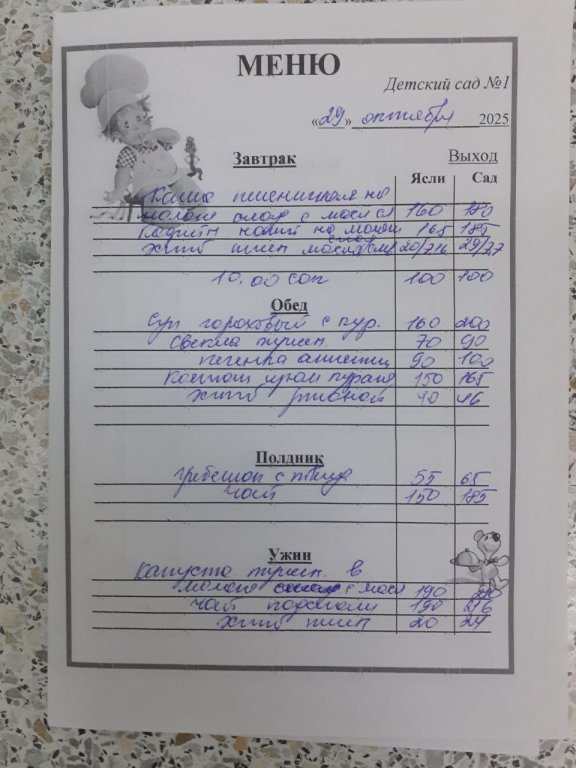 МЕНЮ
Детский сад №1
«29» октября 2025
Завтрак Выход
Ясли Сад
Каша пшеничная на
молоке с маслом 160 180
напит на молоке 165 185
Хлеб пшен масло 20/7
10.00 сок 100 100
Обед
Суп гороховый с кур. 160 200
Свекла тушен. 70 90
печенка 90 100
Компот 150 165
Хлеб ржаной 40 46
Полдник
Гребешок с 55 65
чай 150 185
Ужин
Капуста тушен. в
молоке с масл 190
чай 190 216
Хлеб пшен 20 24